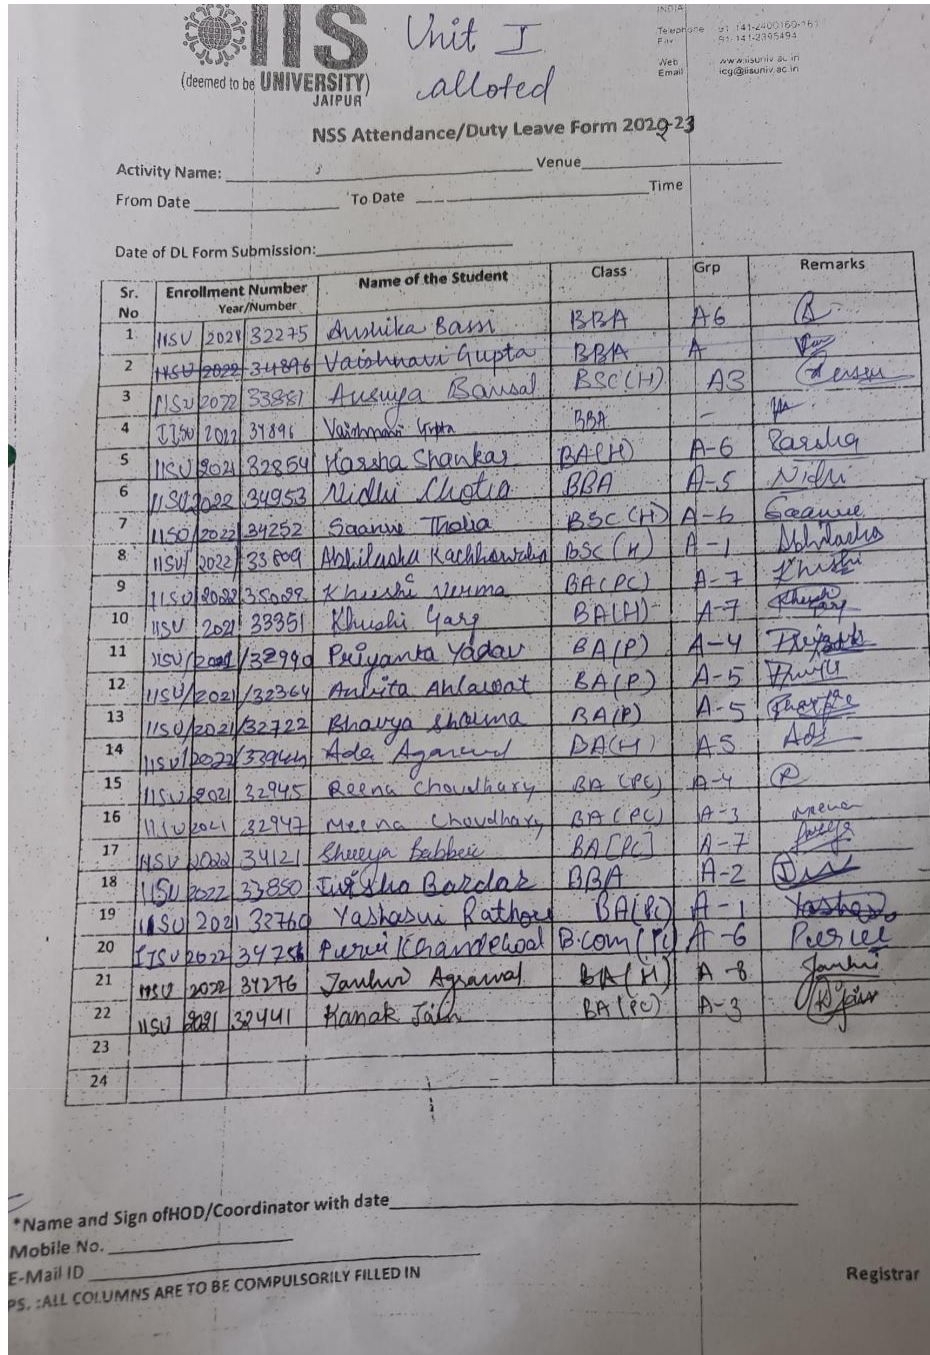 IIS
(deemed to be UNIVERSITY)
JAIPUR
Unit I
alloted
INDIA
Telephone 91 141-2400160-161
Fax 91-141-2395494
Web www.iisuniv.ac.in
Email icg@iisuniv.ac.in
NSS Attendance/Duty Leave Form 2022-23
Activity Name: Venue
From Date To Date Time
Date of DL Form Submission:
Sr. No Enrollment Number Year/Number Name of the Student Class Grp Remarks
1 IISU 2021 32275 Anshika Bassi BBA A6
2 IISU 2022 34896 Vaishnavi Gupta BBA A
3 IISU 2022 33881 Ansuiya Bansal BSC(H) A3
4 IISU 2022 34896 Vaishnavi Gupta BBA -
5 IISU 2021 32854 Harsha Shankar BA(H) A-6 Harsha
6 IISU 2022 34953 Nidhi Chotia BBA A-5 Nidhi
7 IISU/2022/34252 Saanve Tholia BSC (H) A-6 Saanve
8 IISU/2022/33809 Abhilasha Kachhawaha BSC (H) A-1 Abhilasha
9 IISU/2022/35029 Khushi Verma BA(PC) A-7 Khushi
10 IISU 2021 33351 Khushi Garg BA(H) A-7 Khushi Garg
11 IISU/2021/32990 Priyanka Yadav BA(P) A-4
12 IISU/2021/32364 Ankita Ahlawat BA(P) A-5
13 IISU/2021/32722 Bhavya Sharma BA(P) A-5
14 IISU/2022/33944 Ada Agarwal BA(H) A5
15 IISU 2021 32945 Reena Choudhary BA (PC) A-4 R
16 IISU 2021 32947 Meena Choudhary BA (PC) A-3 Meena
17 IISU 2022 34121 Shreya Babbar BA[PC] A-7
18 IISU 2022 33850 Bardar BBA A-2
19 IISU 2021 32760 Yashasvi Rathore BA(PC) A-1
20 IISU 2022 34756 Purvi Khandelwal B.com (PC) A-6 Purvi
21 IISU 2022 34276 Janhvi Agrawal BA(H) A-8 Janhvi
22 IISU 2021 32441 Kanak Jain BA(PC) A-3 KJain
23
24
*Name and Sign ofHOD/Coordinator with date
Mobile No.
E-Mail ID
PS. :ALL COLUMNS ARE TO BE COMPULSORILY FILLED IN
Registrar